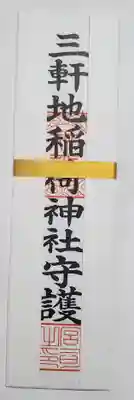 三軒地稲荷神社守護